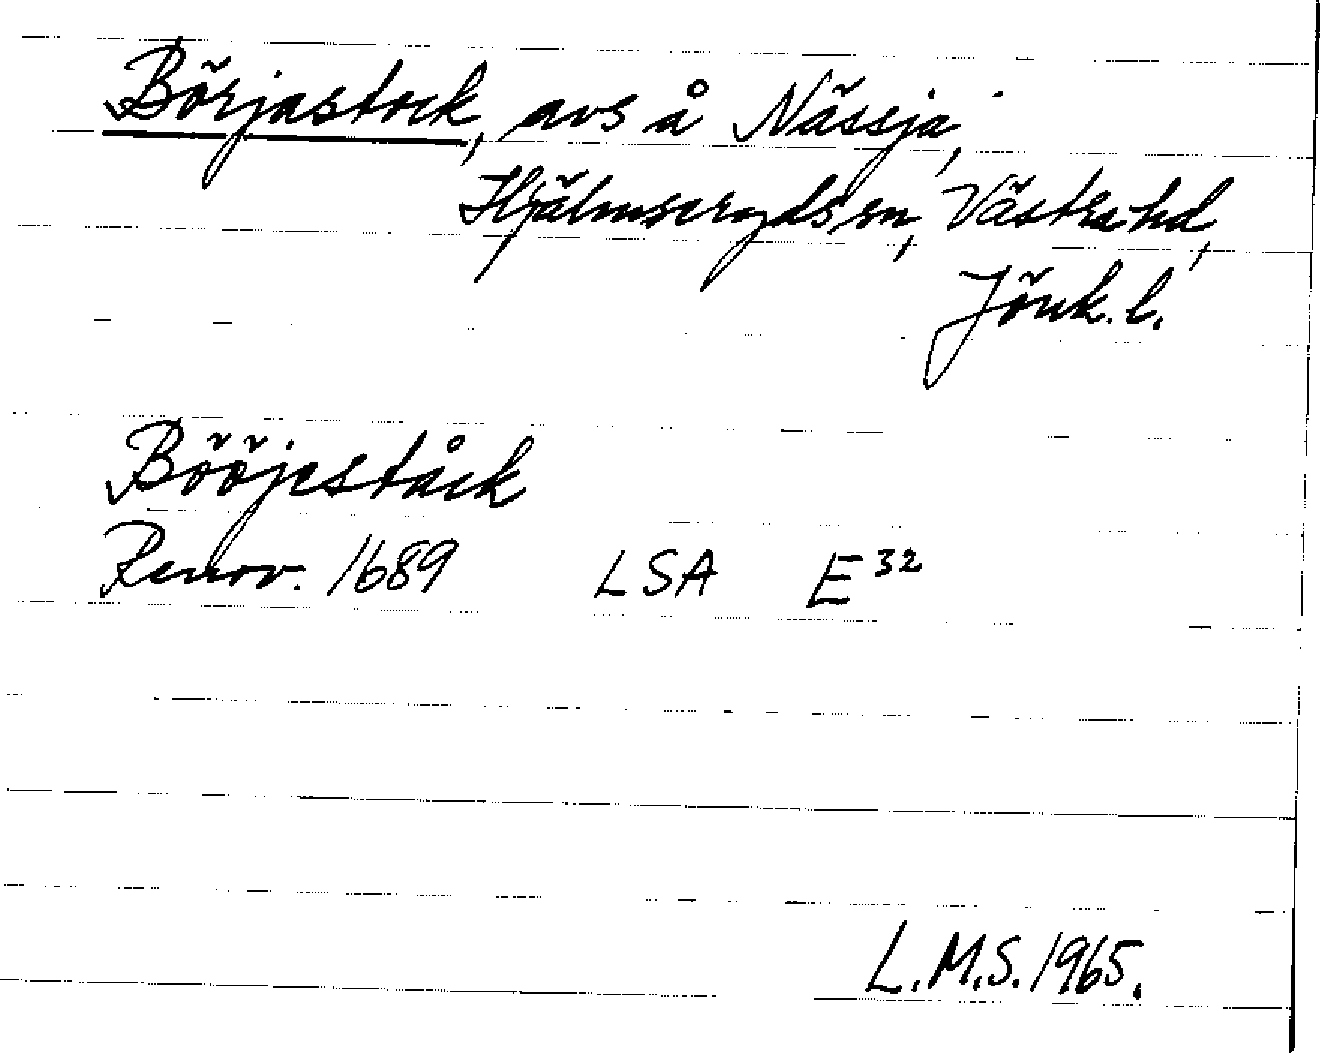 Börjastock, avs å Nässja,
Hjälmseryds sn, Västra hd,
Jönk. l.
Bööjestå̊ck
Renov. 1689 LSA E 32
L.M.S. 1965.